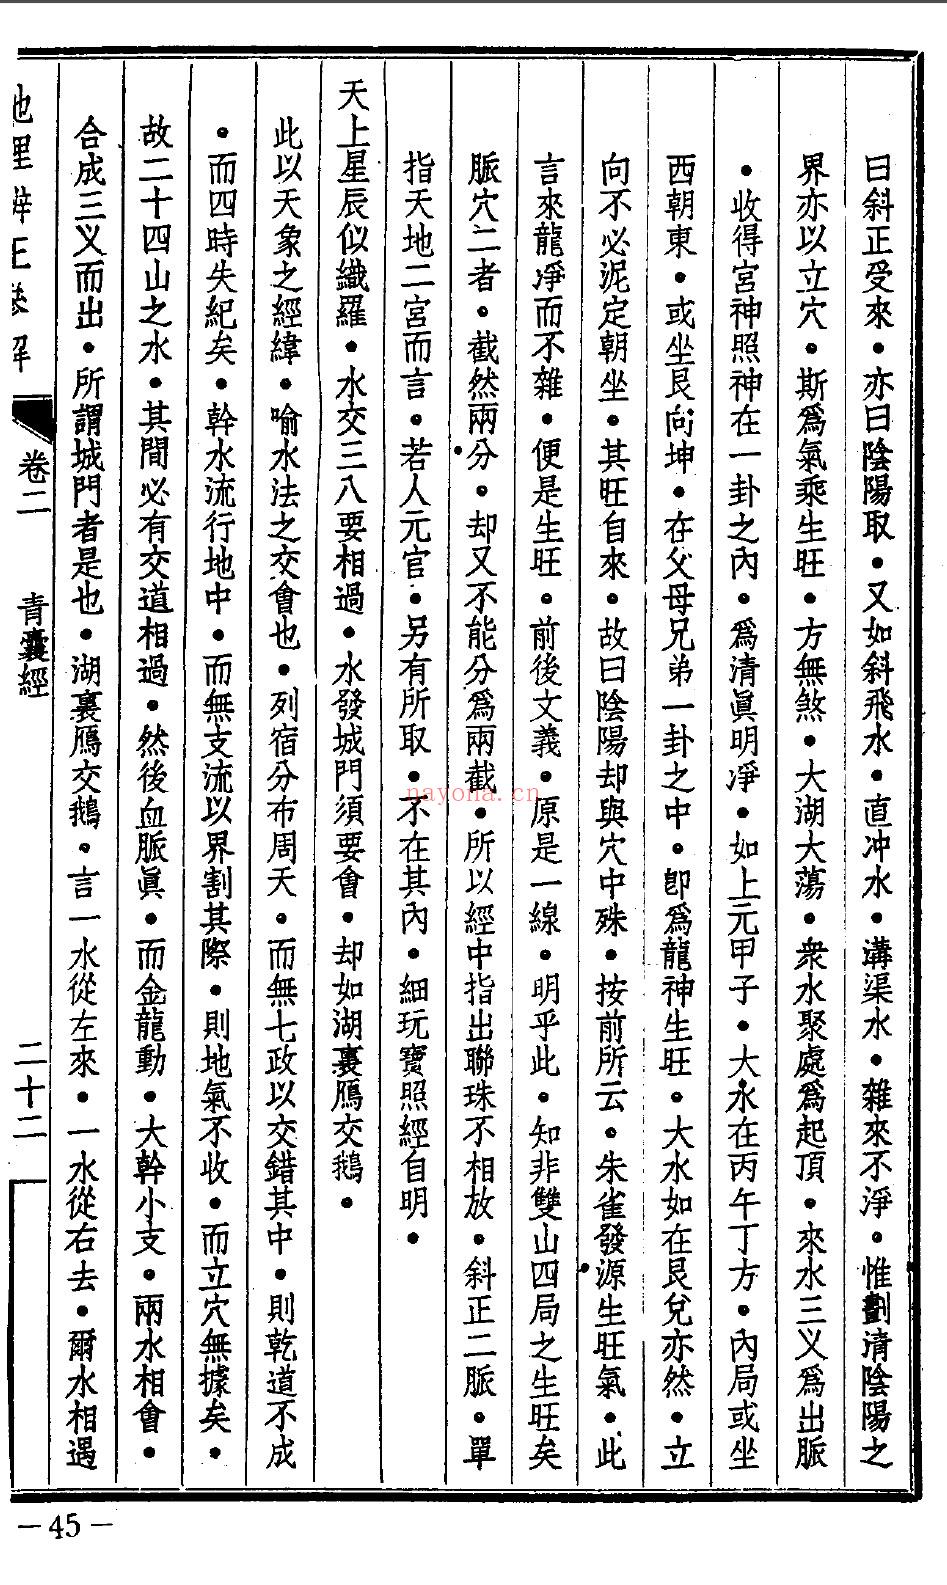 曰斜正受來．亦曰陰陽取．又如斜飛水．直冲水．溝渠水．雜來不淨．惟劃清陰陽之
界亦以立穴．斯爲氣乘生旺．方無煞．大湖大蕩．衆水聚處爲起頂．來水三叉爲出脈
．收得宮神照神在一卦之內．爲清眞明淨．如上元甲子．大水在丙午丁方．內局或坐
西朝東．或坐艮向坤．在父母兄弟一卦之中．卽爲龍神生旺．大水如在艮兌亦然．立
向不必泥定朝坐．其旺自來．故曰陰陽却與穴中殊．按前所云．朱雀發源生旺氣．此
言來龍淨而不雜．便是生旺．前後文義．原是一線．明乎此．知非雙山四局之生旺矣
脈穴二者．截然兩分．却又不能分爲兩截．所以經中指出聯珠不相放．斜正二脈．單
指天地二宮而言．若人元官．另有所取．不在其內．細玩寶照經自明．
天上星辰似織羅．水交三八要相過．水發城門須要會．却如湖裏鴈交鵝．
此以天象之經緯．喻水法之交會也．列宿分布周天．而無七政以交錯其中．則乾道不成
．而四時失紀矣．幹水流行地中．而無支流以界割其際．則地氣不收．而立穴無據矣．
故二十四山之水．其間必有交道相過．然後血脈眞．而金龍動．大幹小支．兩水相會．
合成三叉而出．所謂城門者是也．湖裏鴈交鵝．言一水從左來．一水從右去．爾水相遇
地理辨正叅解 卷二 青囊經 二十二
—45—
nayona.cn